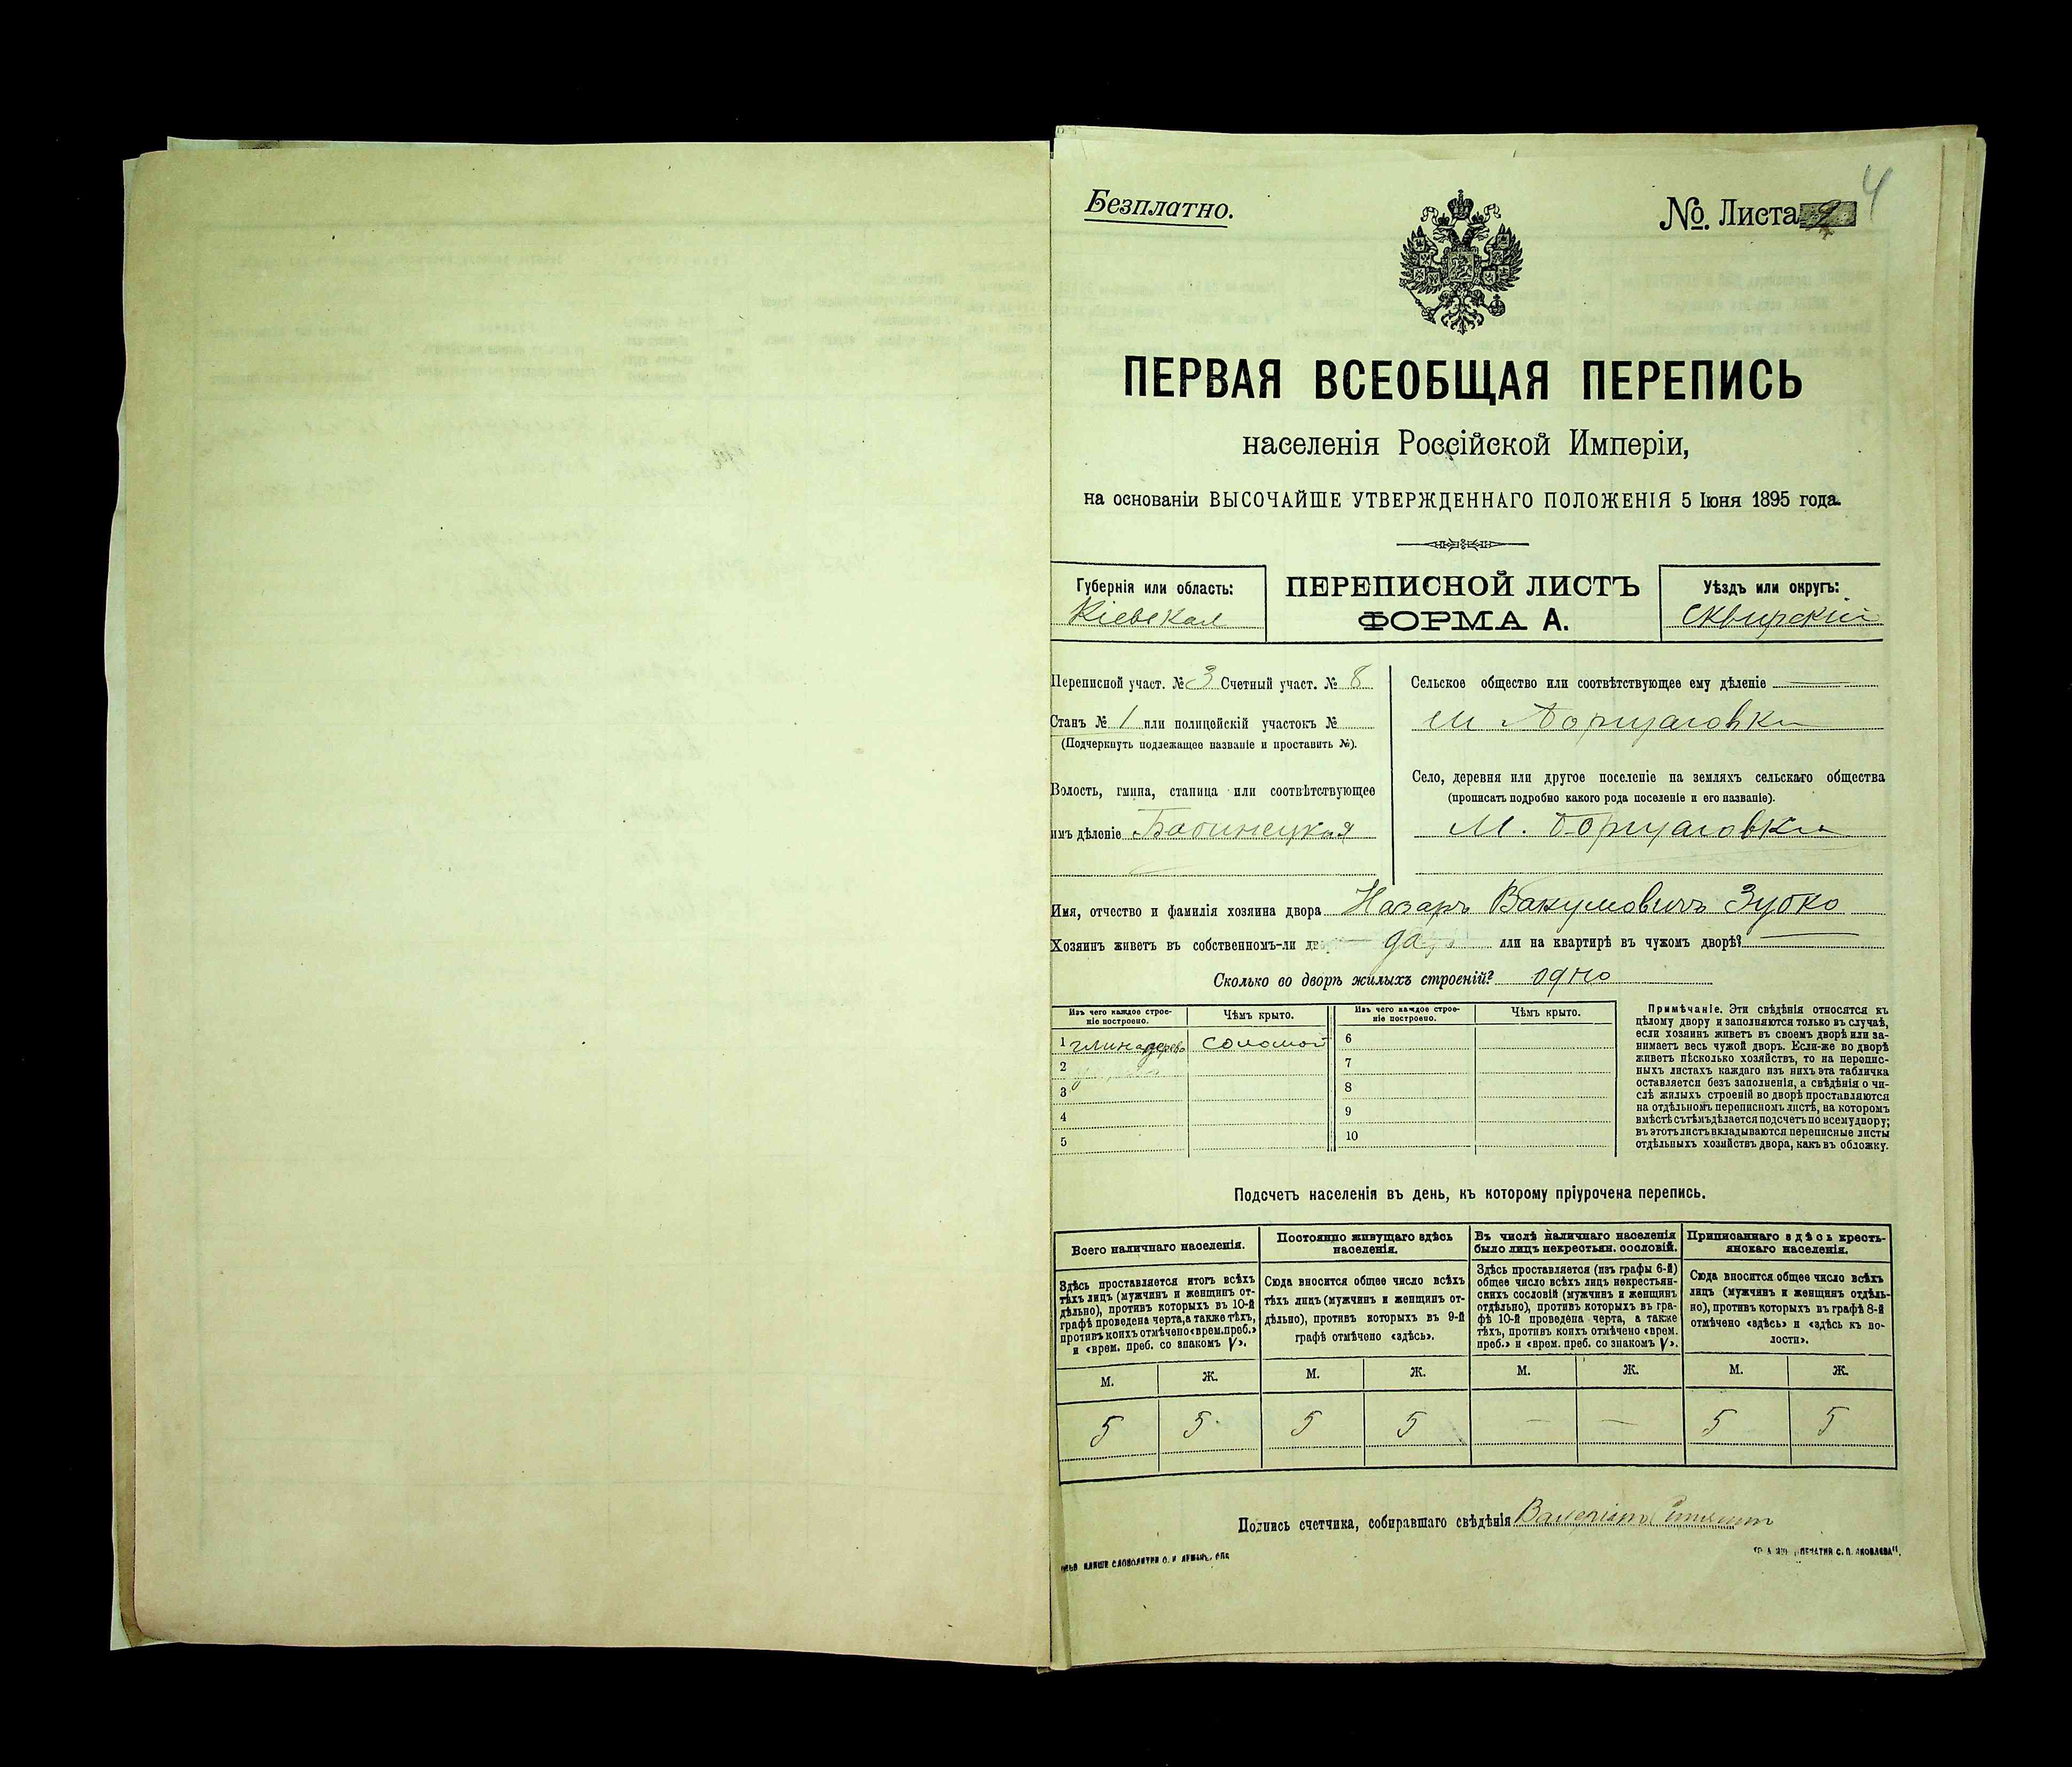 Безплатно.
№ Листа
4
ПЕРВАЯ ВСЕОБЩАЯ ПЕРЕПИСЬ
населенія Россійской Имперіи,
на основаніи ВЫСОЧАЙШЕ УТВЕРЖДЕННАГО ПОЛОЖЕНІЯ 5 Іюня 1895 года.
Губернія или область:
Кіевская
ПЕРЕПИСНОЙ ЛИСТЪ
ФОРМА А.
Уѣздъ или округъ:
Сквирскій
Переписной участ. № 3 Счетный участ. № 8
Станъ № 1 или полицейскій участокъ №
(Подчеркнуть подлежащее названіе и проставить №).
Волость, гмина, станица или соотвѣтствующее
имъ дѣленіе Бабинецкая
Сельское общество или соотвѣтствующее ему дѣленіе
м Борщаговка
Село, деревня или другое поселеніе на земляхъ сельскаго общества
(прописать подробно какого рода поселеніе и его названіе).
М. Борщаговка
Имя, отчество и фамилія хозяина двора Назаръ Вакумовичъ Зубко
Хозяинъ живетъ въ собственномъ-ли да или на квартирѣ въ чужомъ дворѣ?
Сколько во дворѣ жилыхъ строеній? одно
Изъ чего каждое строе-
ніе построено.
Чѣмъ крыто.
Изъ чего каждое строе-
ніе построено.
Чѣмъ крыто.
1 глина дерево соломой 6
2 7
3 8
4 9
5 10
Примѣчаніе. Эти свѣдѣнія относятся къ
цѣлому двору и заполняются только въ случаѣ,
если хозяинъ живетъ въ своемъ дворѣ или за-
нимаетъ весь чужой дворъ. Если-же во дворѣ
живетъ нѣсколько хозяйствъ, то на перепис-
ныхъ листахъ каждаго изъ нихъ эта табличка
оставляется безъ заполненія, а свѣдѣнія о чи-
слѣ жилыхъ строеній во дворѣ проставляются
на отдѣльномъ переписномъ листѣ, на которомъ
вмѣстѣ съ тѣмъ дѣлается подсчетъ по всему двору;
въ этотъ листъ вкладываются переписные листы
отдѣльныхъ хозяйствъ двора, какъ въ обложку.
Подсчетъ населенія въ день, къ которому пріурочена перепись.
Всего наличнаго населенія.
Здѣсь проставляется итогъ всѣхъ
тѣхъ лицъ (мужчинъ и женщинъ от-
дѣльно), противъ которыхъ въ 10-й
графѣ проведена черта, а также тѣхъ,
противъ коихъ отмѣчено «врем. преб.»
и «врем. преб. со знакомъ V».
Постоянно живущаго здѣсь
населенія.
Сюда вносится общее число всѣхъ
тѣхъ лицъ (мужчинъ и женщинъ от-
дѣльно), противъ которыхъ въ 9-й
графѣ отмѣчено «здѣсь».
Въ числѣ наличнаго населенія
было лицъ некрестьян. сословій.
Здѣсь проставляется (изъ графы 6-й)
общее число всѣхъ лицъ некрестьян-
скихъ сословій (мужчинъ и женщинъ
отдѣльно), противъ которыхъ въ гра-
фѣ 10-й проведена черта, а также
тѣхъ, противъ коихъ отмѣчено «врем.
преб.» и «врем. преб. со знакомъ V».
Приписаннаго здѣсь кресть-
янскаго населенія.
Сюда вносится общее число всѣхъ
лицъ (мужчинъ и женщинъ отдѣль-
но), противъ которыхъ въ графѣ 8-й
отмѣчено «здѣсь» и «здѣсь къ во-
лости».
М. Ж. М. Ж. М. Ж. М. Ж.
5 5 5 5 — — 5 5
Подпись счетчика, собиравшаго свѣдѣнія Валеріанъ